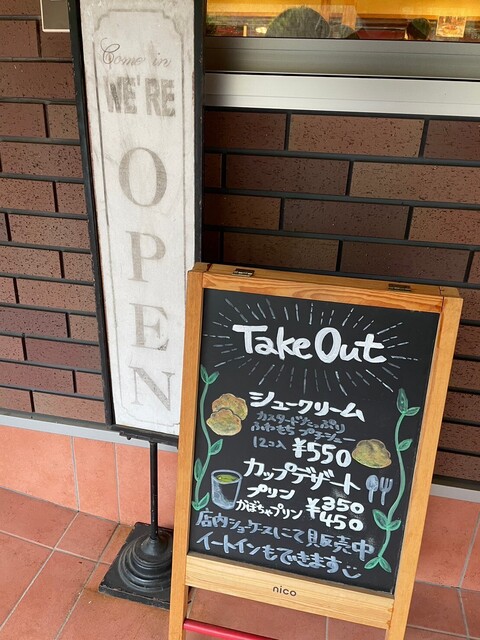 Come in
WE'RE
OPEN
Take Out
シュークリーム
カスタードたっぷり
ふわもち プチシュー
12コ入 ¥550
カップデザート
プリン ¥350
かぼちゃプリン ¥450
店内ショーケースにて販売中
イートインもできます
nico